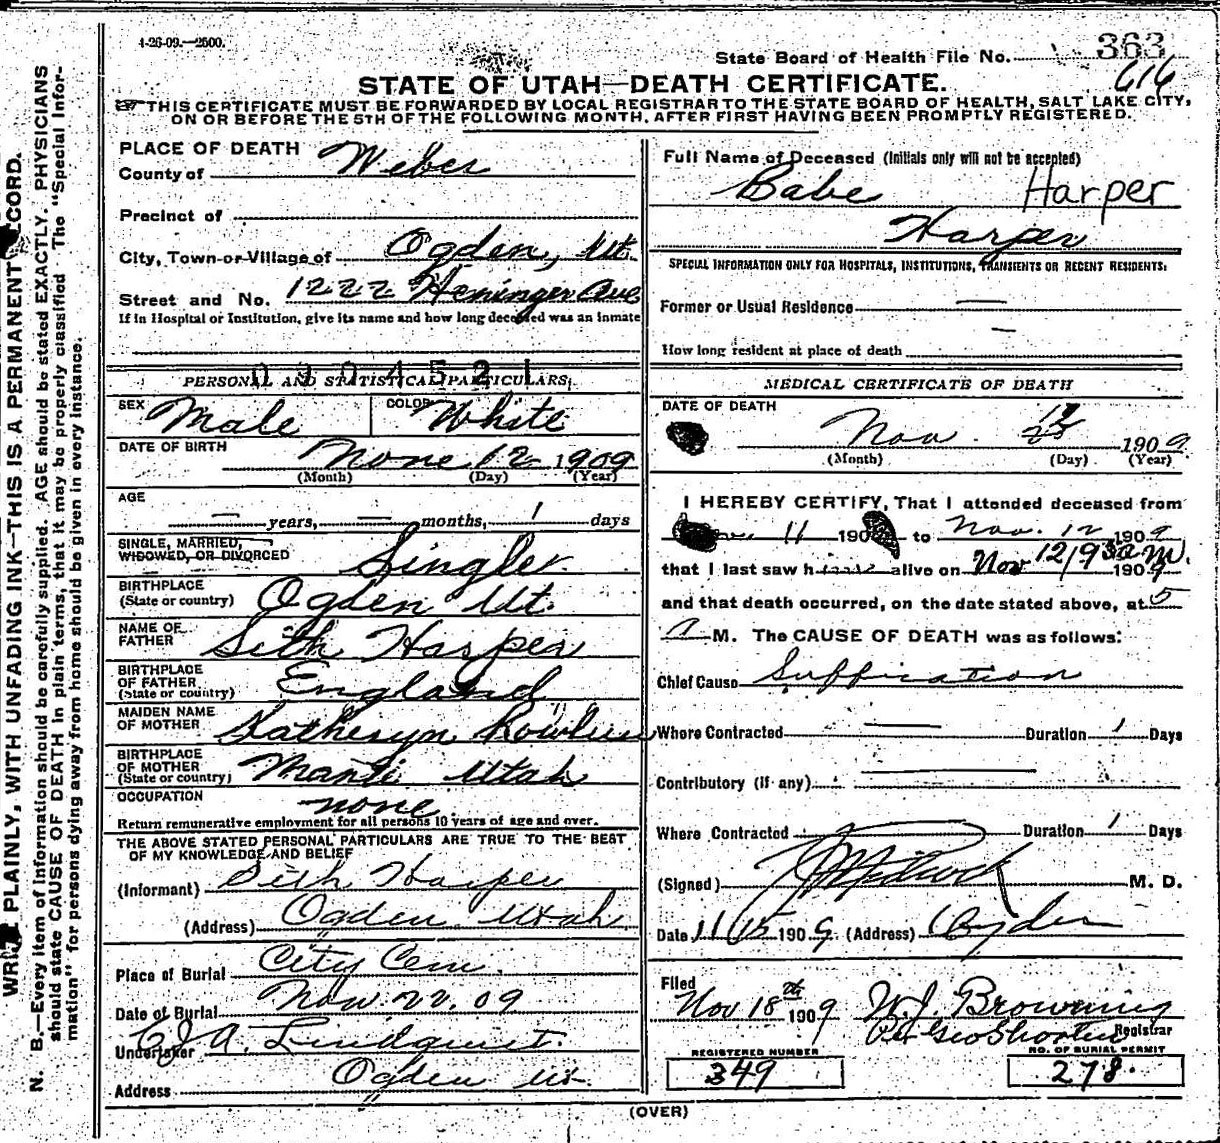 4-26-09.—2500.
State Board of Health File No. 363
616
STATE OF UTAH—DEATH CERTIFICATE.
THIS CERTIFICATE MUST BE FORWARDED BY LOCAL REGISTRAR TO THE STATE BOARD OF HEALTH, SALT LAKE CITY,
ON OR BEFORE THE 5TH OF THE FOLLOWING MONTH, AFTER FIRST HAVING BEEN PROMPTLY REGISTERED.
PLACE OF DEATH
County of Weber
Precinct of
City, Town or Village of Ogden, Ut.
Street and No. 1222 Heninger Ave
If in Hospital or Institution, give its name and how long deceased was an inmate
PERSONAL AND STATISTICAL PARTICULARS.
SEX Male COLOR White
DATE OF BIRTH None 12 1909
(Month) (Day) (Year)
AGE
— years, — months, 1 days
SINGLE, MARRIED,
WIDOWED, OR DIVORCED Single
BIRTHPLACE
(State or country) Ogden Ut.
NAME OF
FATHER Seth Harper
BIRTHPLACE
OF FATHER
(State or country) England
MAIDEN NAME
OF MOTHER Katheryn
BIRTHPLACE
OF MOTHER
(State or country) Manti Utah
OCCUPATION none
Return remunerative employment for all persons 10 years of age and over.
THE ABOVE STATED PERSONAL PARTICULARS ARE TRUE TO THE BEST
OF MY KNOWLEDGE AND BELIEF
(Informant) Seth Harper
(Address) Ogden Utah
Place of Burial City Cem.
Date of Burial Nov. 22, 09
Undertaker C J A. Lindquist.
Address Ogden Ut.
Full Name of Deceased (Initials only will not be accepted)
Babe Harper
Harper
SPECIAL INFORMATION ONLY FOR HOSPITALS, INSTITUTIONS, TRANSIENTS OR RECENT RESIDENTS.
Former or Usual Residence —
How long resident at place of death —
MEDICAL CERTIFICATE OF DEATH
DATE OF DEATH
Nov. 1909
(Month) (Day) (Year)
I HEREBY CERTIFY, That I attended deceased from
11 190 to Nov. 12 1909
that I last saw h alive on Nov 12/9 30 a M. 1909
and that death occurred, on the date stated above, at 5
A M. The CAUSE OF DEATH was as follows:
Chief Cause Suffication
Where Contracted — Duration 1 Days
Contributory (if any)
Where Contracted Duration 1 Days
(Signed) M. D.
Date 11/15 1909 (Address) Ogden
Filed
Nov 18th 1909 W. J. Browning
Per Geo Shorten Registrar
REGISTERED NUMBER NO. OF BURIAL PERMIT
349 278.
(OVER)
PLAINLY, WITH UNFADING INK—THIS IS A PERMANENT RECORD.
N. B.—Every item of information should be carefully supplied. AGE should be stated EXACTLY. PHYSICIANS
should state CAUSE OF DEATH in plain terms, that it may be properly classified. The "Special Infor-
mation" for persons dying away from home should be given in every instance.